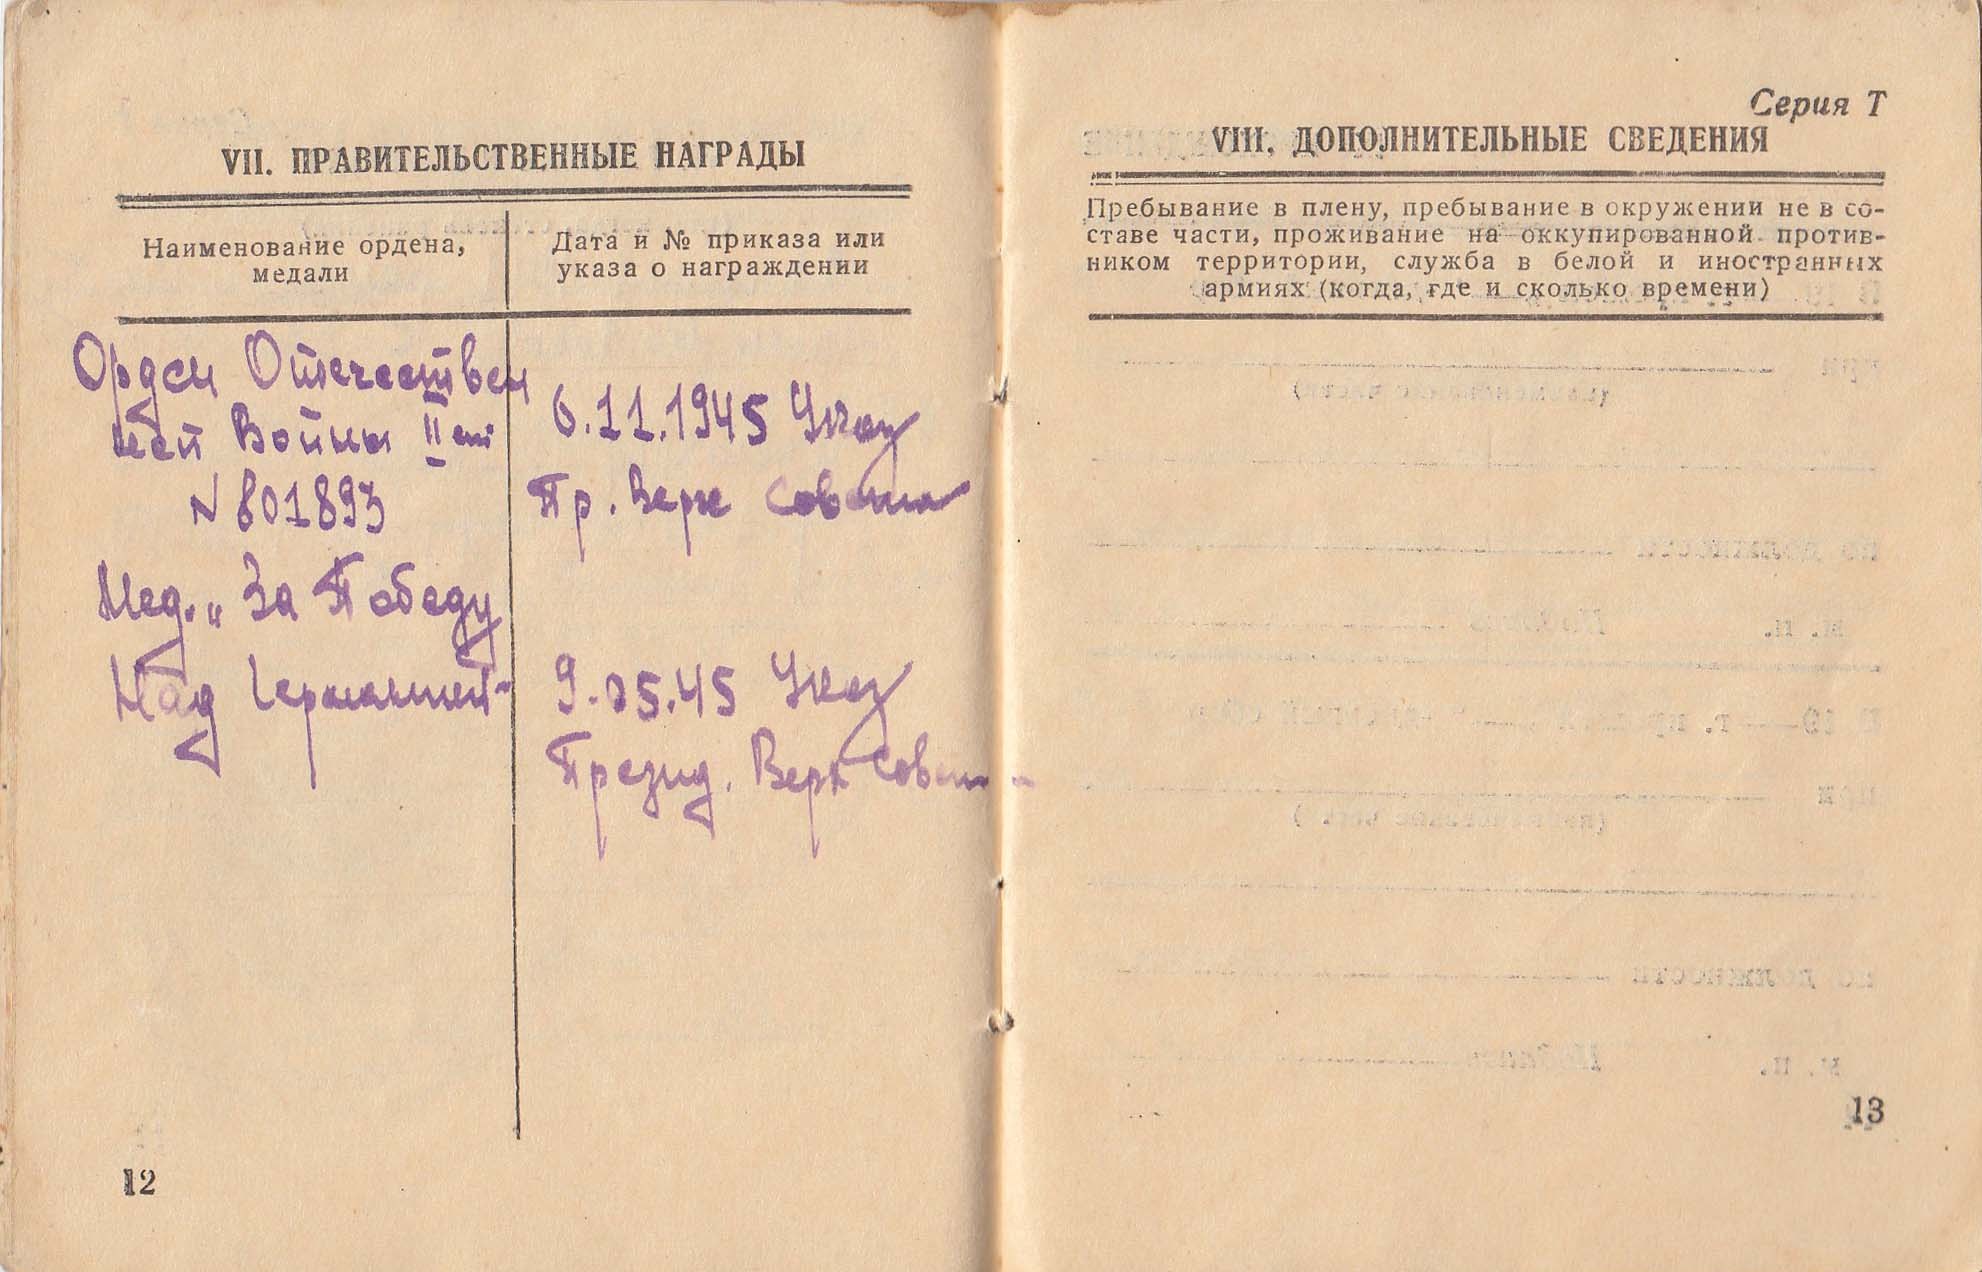 VII. ПРАВИТЕЛЬСТВЕННЫЕ НАГРАДЫ
Наименование ордена,
медали
Дата и № приказа или
указа о награждении
Орден Отечествен
ной Войны II ст
N 801893
6.11.1945 Указ
Пр. Верх Совета
Мед. „ За Победу
Над Германией-
9.05.45 Указ
Презид. Верх Совета
12
Серия Т
VIII. ДОПОЛНИТЕЛЬНЫЕ СВЕДЕНИЯ
Пребывание в плену, пребывание в окружении не в со-
ставе части, проживание на оккупированной против-
ником территории, служба в белой и иностранных
армиях (когда, где и сколько времени)
13